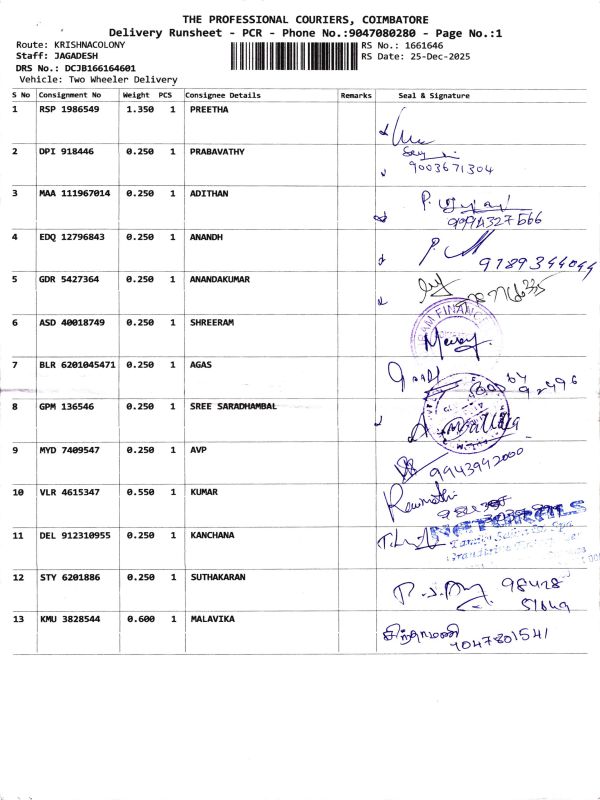 THE PROFESSIONAL COURIERS, COIMBATORE
Delivery Runsheet - PCR - Phone No.:9047080280 - Page No.:1
Route: KRISHNACOLONY RS No.: 1661646
Staff: JAGADESH RS Date: 25-Dec-2025
DRS No.: DCJB166164601
Vehicle: Two Wheeler Delivery
S No Consignment No Weight PCS Consignee Details Remarks Seal & Signature
1 RSP 1986549 1.350 1 PREETHA
2 DPI 918446 0.250 1 PRABAVATHY
9003671304
3 MAA 111967014 0.250 1 ADITHAN
P.
9994327566
4 EDQ 12796843 0.250 1 ANANDH
P.
9789344044
5 GDR 5427364 0.250 1 ANANDAKUMAR
6 ASD 40018749 0.250 1 SHREERAM
FINANCE
7 BLR 6201045471 0.250 1 AGAS
8 GPM 136546 0.250 1 SREE SARADHAMBAL
9 MYD 7409547 0.250 1 AVP
9943942000
10 VLR 4615347 0.550 1 KUMAR
Revathi
NATURALS
11 DEL 912310955 0.250 1 KANCHANA
12 STY 6201886 0.250 1 SUTHAKARAN
98428
51649
13 KMU 3828544 0.600 1 MALAVIKA
சிந்தாமணி
9047801541